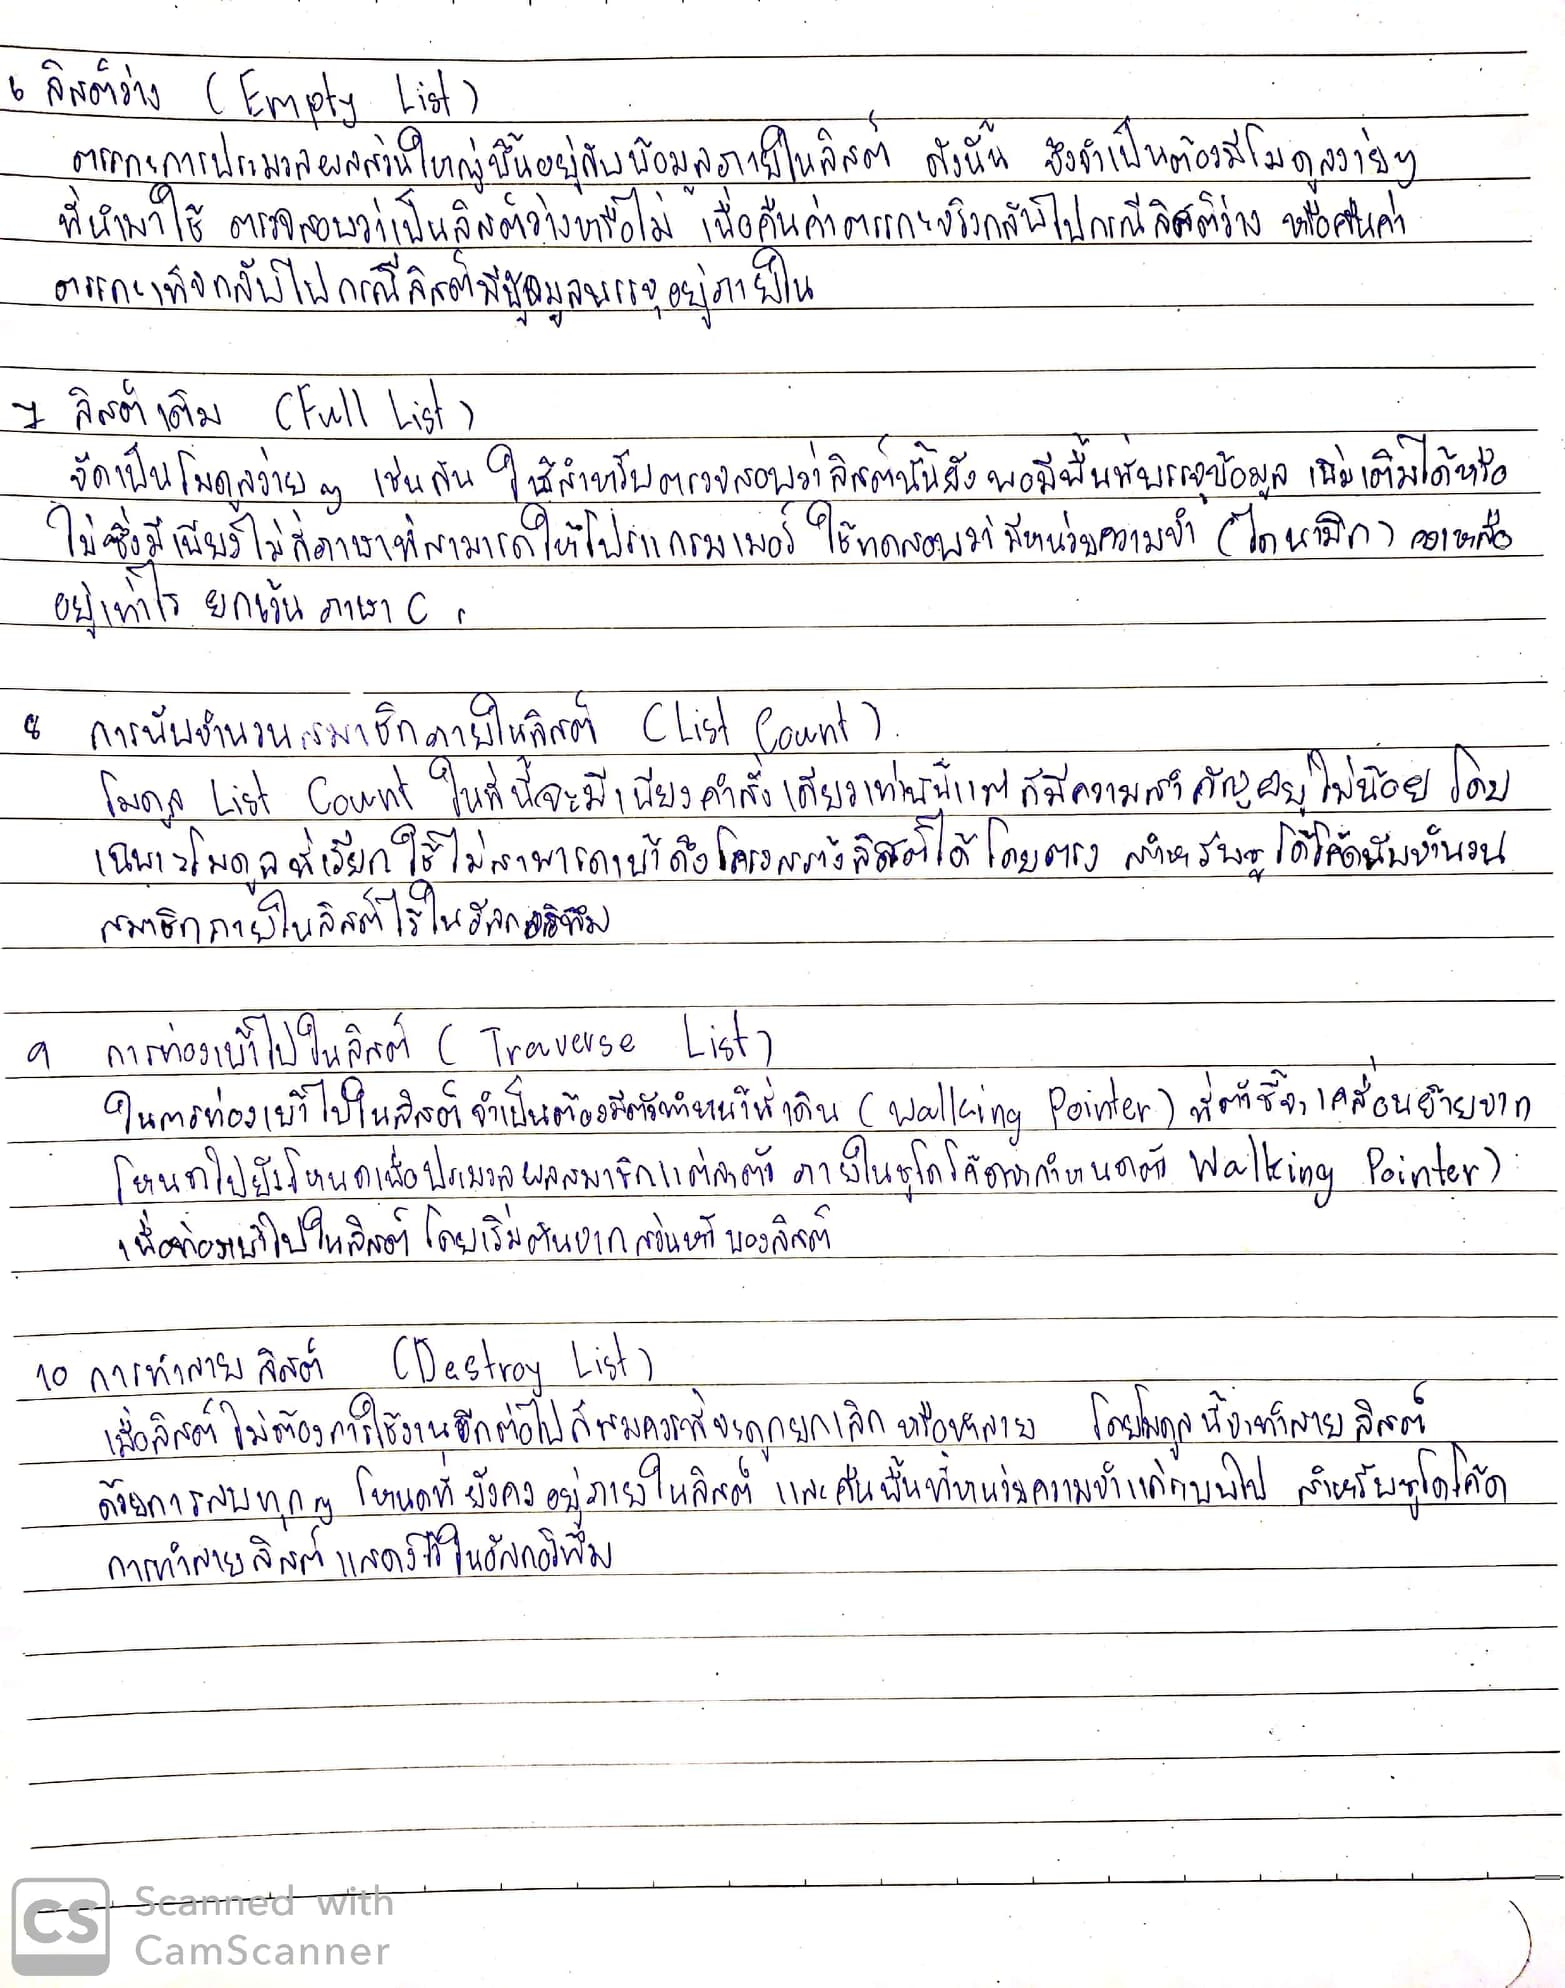 6 ลิสต์ว่าง (Empty List)
ตรรกะการประมวลผลส่วนใหญ่ขึ้นอยู่กับข้อมูลภายในลิสต์ ดังนั้น จึงจำเป็นต้องมีโมดูลง่ายๆ
ที่นำมาใช้ ตรวจสอบว่าเป็นลิสต์ว่างหรือไม่ เพื่อคืนค่าตรรกะจริงกลับไปกรณีลิสต์ว่าง หรือคืนค่า
ตรรกะเท็จกลับไปกรณีลิสต์มีข้อมูลบรรจุอยู่ภายใน
7 ลิสต์เต็ม (Full List)
จัดเป็นโมดูลง่ายๆ เช่นกัน ใช้สำหรับตรวจสอบว่าลิสต์นั้นยังพอมีพื้นที่บรรจุข้อมูล เพิ่มเติมได้หรือ
ไม่ซึ่งมีเพียงไม่กี่ภาษาที่สามารถให้โปรแกรมเมอร์ ใช้ทดสอบว่ามีหน่วยความจำ (ไดนามิก) คงเหลือ
อยู่เท่าไร ยกเว้น ภาษา C
8 การนับจำนวนสมาชิกภายในลิสต์ (List Count)
โมดูล List Count ในที่นี้จะมีเพียงคำสั่ง เดียวเท่านั้นแต่ก็มีความสำคัญอยู่ไม่น้อย โดย
เฉพาะโมดูลที่เรียกใช้ไม่สามารถเข้าถึงโครงสร้างลิสต์ได้โดยตรง สำหรับซูโดโค้ดนับจำนวน
สมาชิกภายในลิสต์ไว้ในอัลกอริทึม
9 การท่องเข้าไปในลิสต์ (Traverse List)
ในการท่องเข้าไปในลิสต์จำเป็นต้องมีตัวทำหน้าที่เดิน (Walking Pointer) ที่ตัวชี้จะเคลื่อนย้ายจาก
โหนดไปยังโหนดเพื่อประมวลผลสมาชิกแต่ละตัว ภายในซูโดโค้ดจะกำหนดตัว Walking Pointer)
เพื่อท่องเข้าไปในลิสต์ โดยเริ่มต้นจากส่วนหัวของลิสต์
10 การทำลายลิสต์ (Destroy List)
เมื่อลิสต์ไม่ต้องการใช้งานอีกต่อไปก็สมควรที่จะถูกยกเลิกหรือทำลาย โดยโมดูลนี้จะทำลายลิสต์
ด้วยการลบทุกๆ โหนดที่ยังคงอยู่ภายในลิสต์ และคืนพื้นที่หน่วยความจำแก่ระบบไป สำหรับซูโดโค้ด
การทำลายลิสต์แสดงไว้ในอัลกอริทึม
CS Scanned with
CamScanner